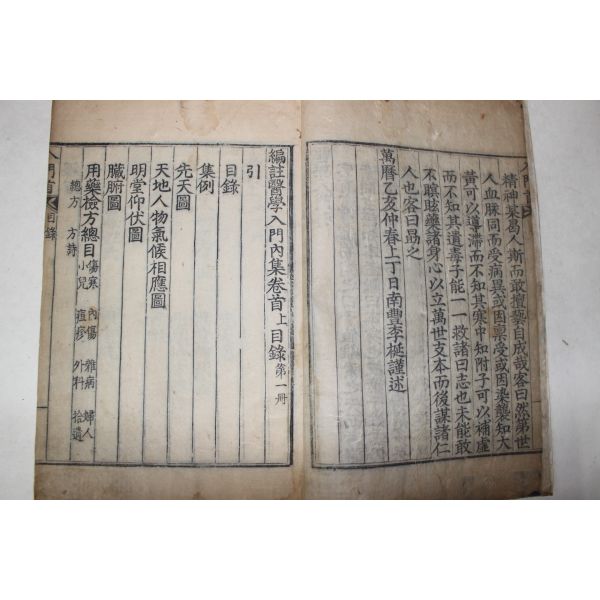 精神榮葛人斯而敢擅藝自成哉客曰然第世
人血脉同而受病異或因稟受或因染襲知大
黃可以導滯而不知其寒中知附子可以補虛
而不知其遺毒子能一一救諸曰志也未能敢
不瞑眩藥諸身心以立萬世支本而後謀諸仁
人也客曰勗之
萬曆乙亥仲春上丁日南豐李梴謹述
編註醫學入門內集卷首上目錄 第一冊
引
目錄
集例
先天圖
天地人物氣候相應圖
明堂仰伏圖
臟腑圖
用藥檢方總目 傷寒 內傷 雜病 婦人
小兒 痘疹 外科 拾遺
總方 方詩
入門首 目錄